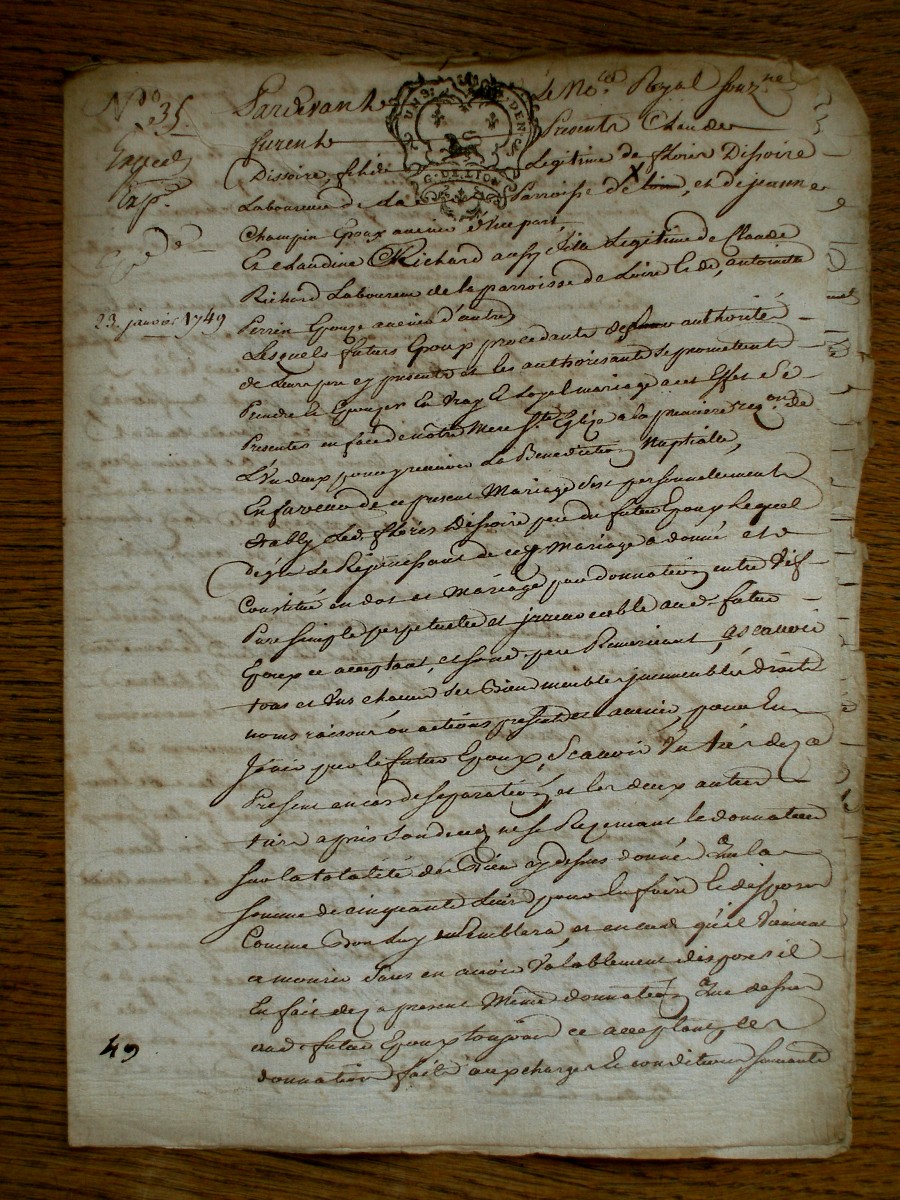 N.º 35.
Pardevant le No.re Royal Souz.ne
furent Presents Claude
Dissoire, fils Legitime de floris Dissoire
Laboureur de la Parroisse de et de jeanne
Champin Epoux avenir d'une part
Et claudine Richard aussy fille Legitime de Claude
Richard Laboureur de la parroisse de Luire le de, antoinette
Perrin Epouze avenir d'autre
23. janvier 1749
Lesquels futurs Epoux procedants de authorité
de leurs pere cy presents et les authorisants se promettent
Prendre & Epouzer En vray & Loyal mariage a cet Effet se
Presenter en face de nôtre Mere S.te Eglize a la premiere req.on de
L'un deux pour y recevoir La Benediction Nuptialle,
En faveur de ce present Mariage s'est personnellement
Etably Led. floris Dissoire pere du futur Epoux Lequel
de gré Se Rejouissant de ce Mariage a donné et
Constitué en dot et Mariage par donnation entre Vif
Pure simple perpetuelle et irrevocable aud. futur
Epoux ce acceptant, et sond. pere Remerciant, ascavoir
tous et uns chacuns ses Biens meubles jmmeubles droits
noms raisons ou actions presents et avenir, pour En
Jouir par le futur Epoux, Scavoir Un tier deja
Present en cas de separation, et les deux autres
tiers après son deceds, ne se Reservant le donnateur
sur la totalité des Biens cy dessus donnés Que la
somme de cinquante Livres pour En faire & disposer
Comme Bon luy semblera et en cas qu'il Vienne
a mourir sans en avoir Valablement disposé il
En fait dez a present Même donnation Que dessus
aud. futur Epoux toujours ce acceptant, les
donnation faite aux charges & conditions suivante
49